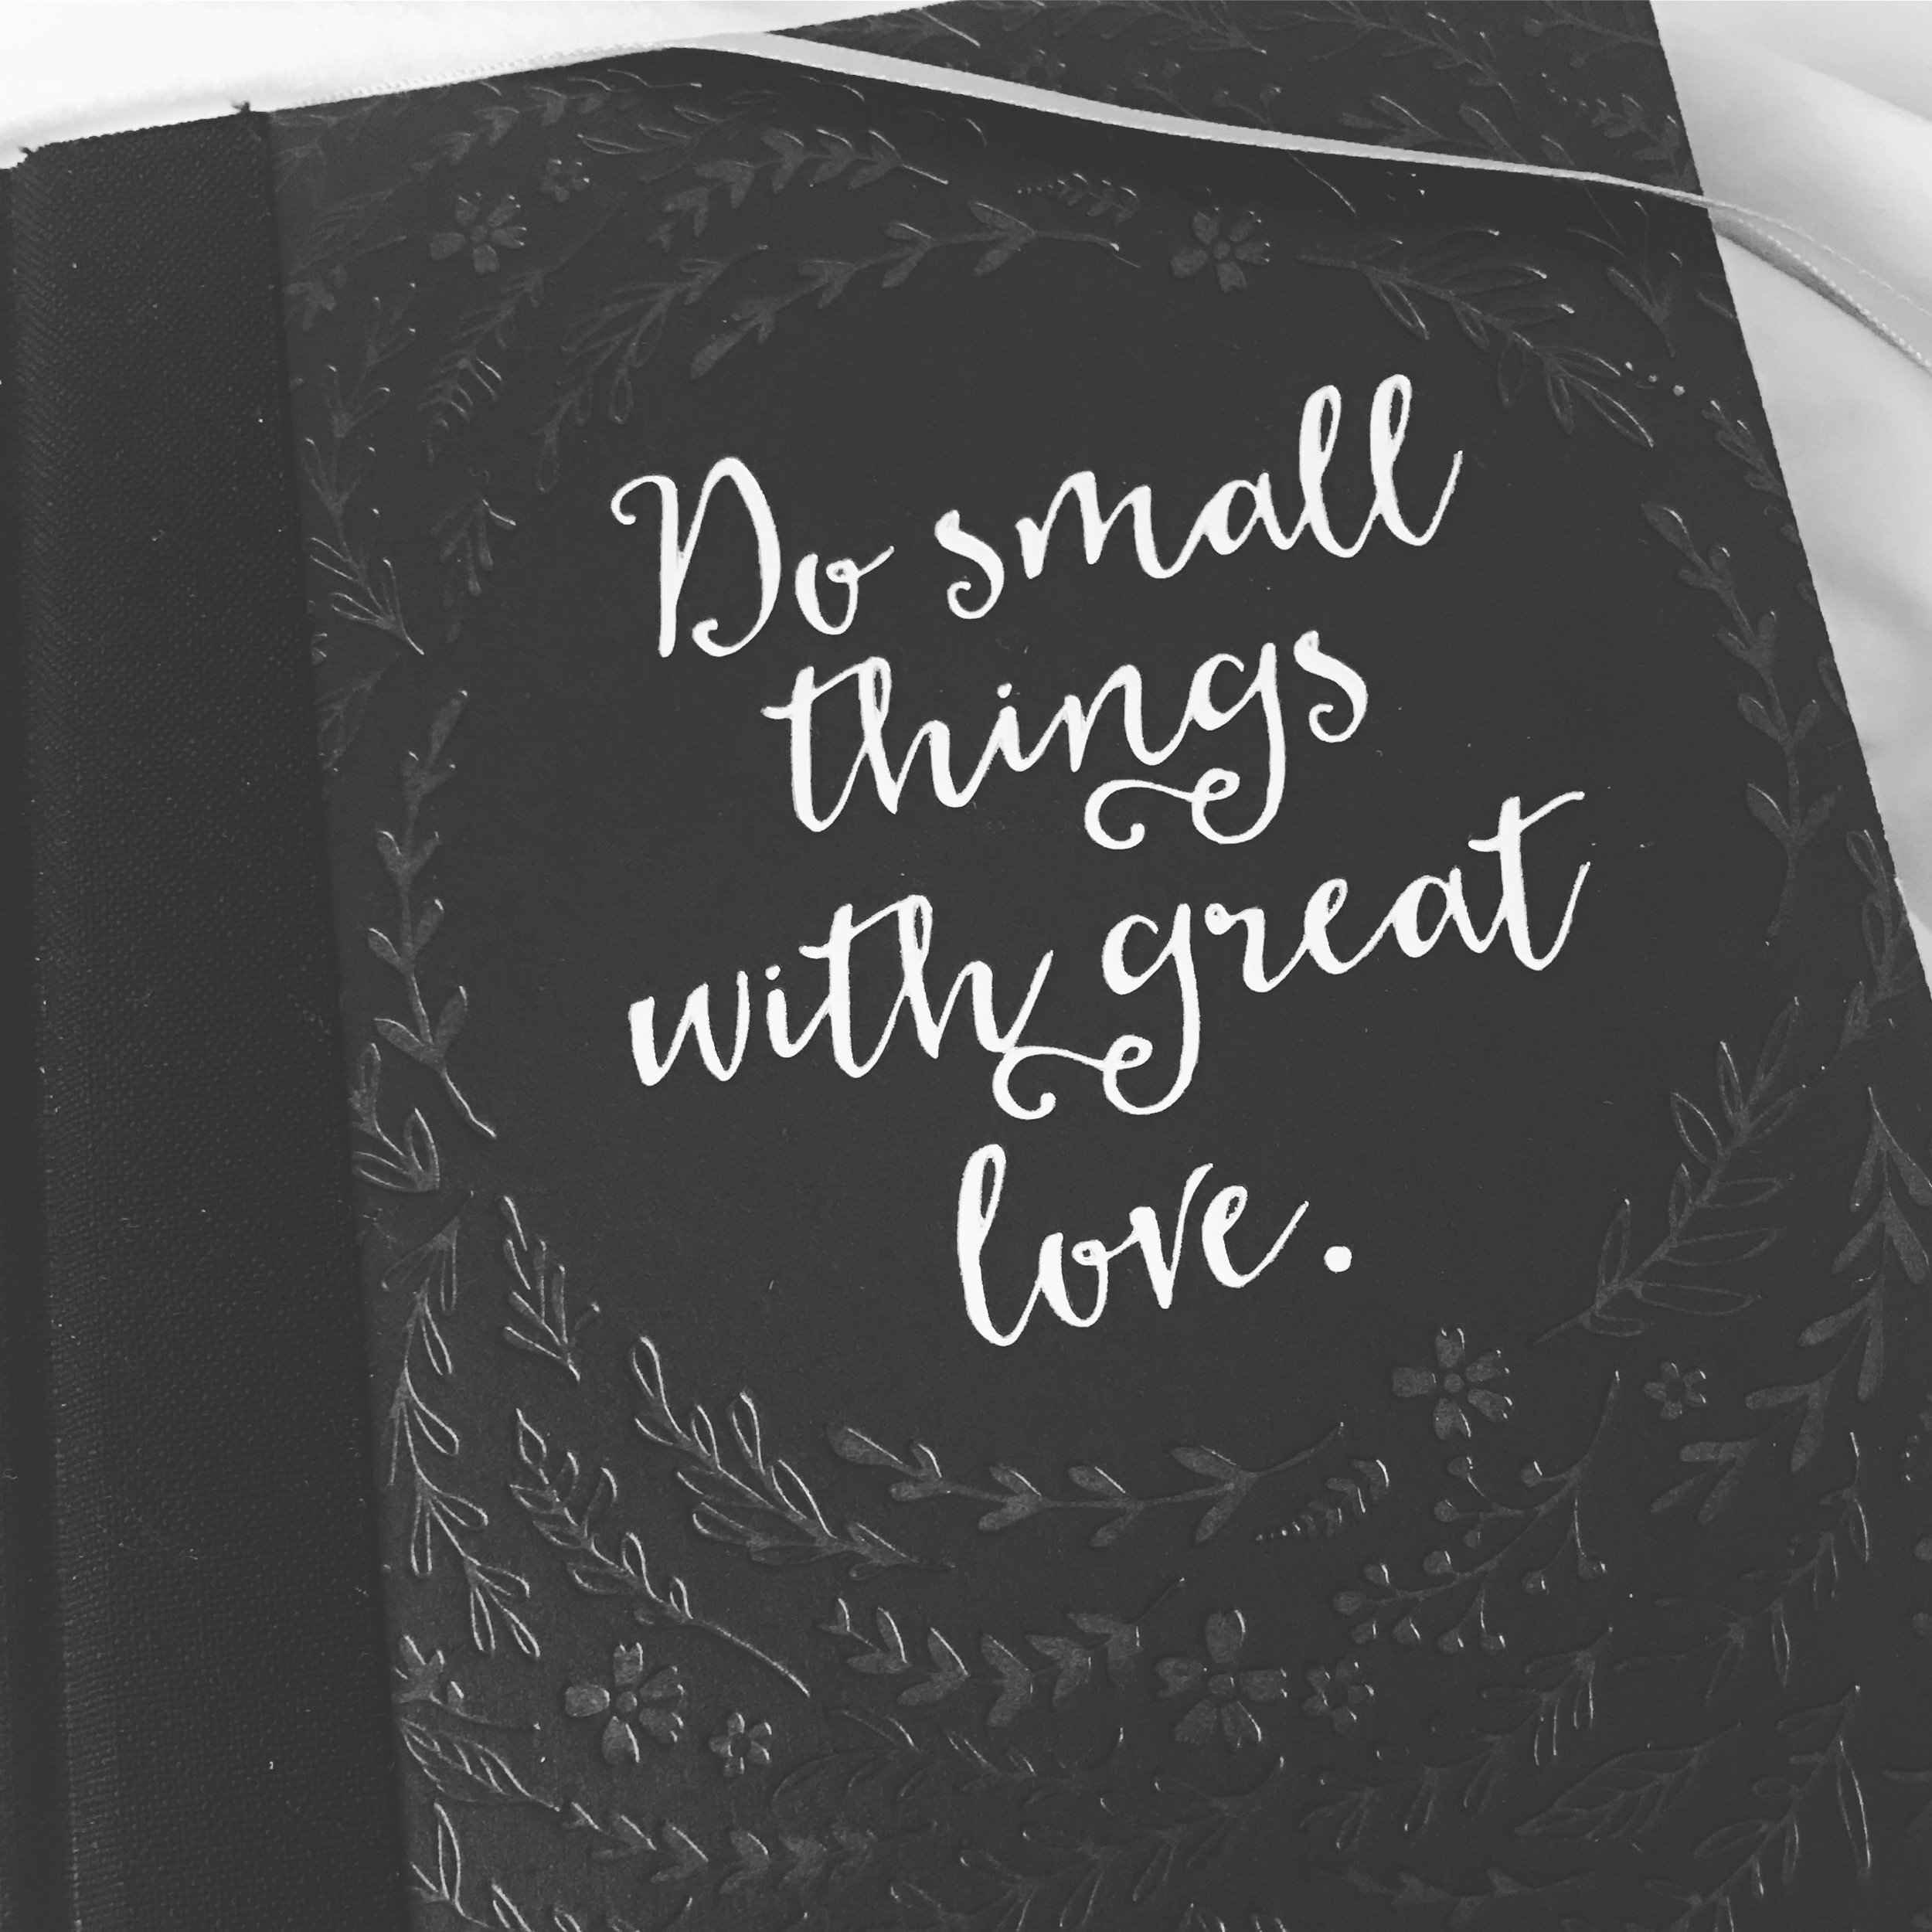 Do small
things
with great
love.